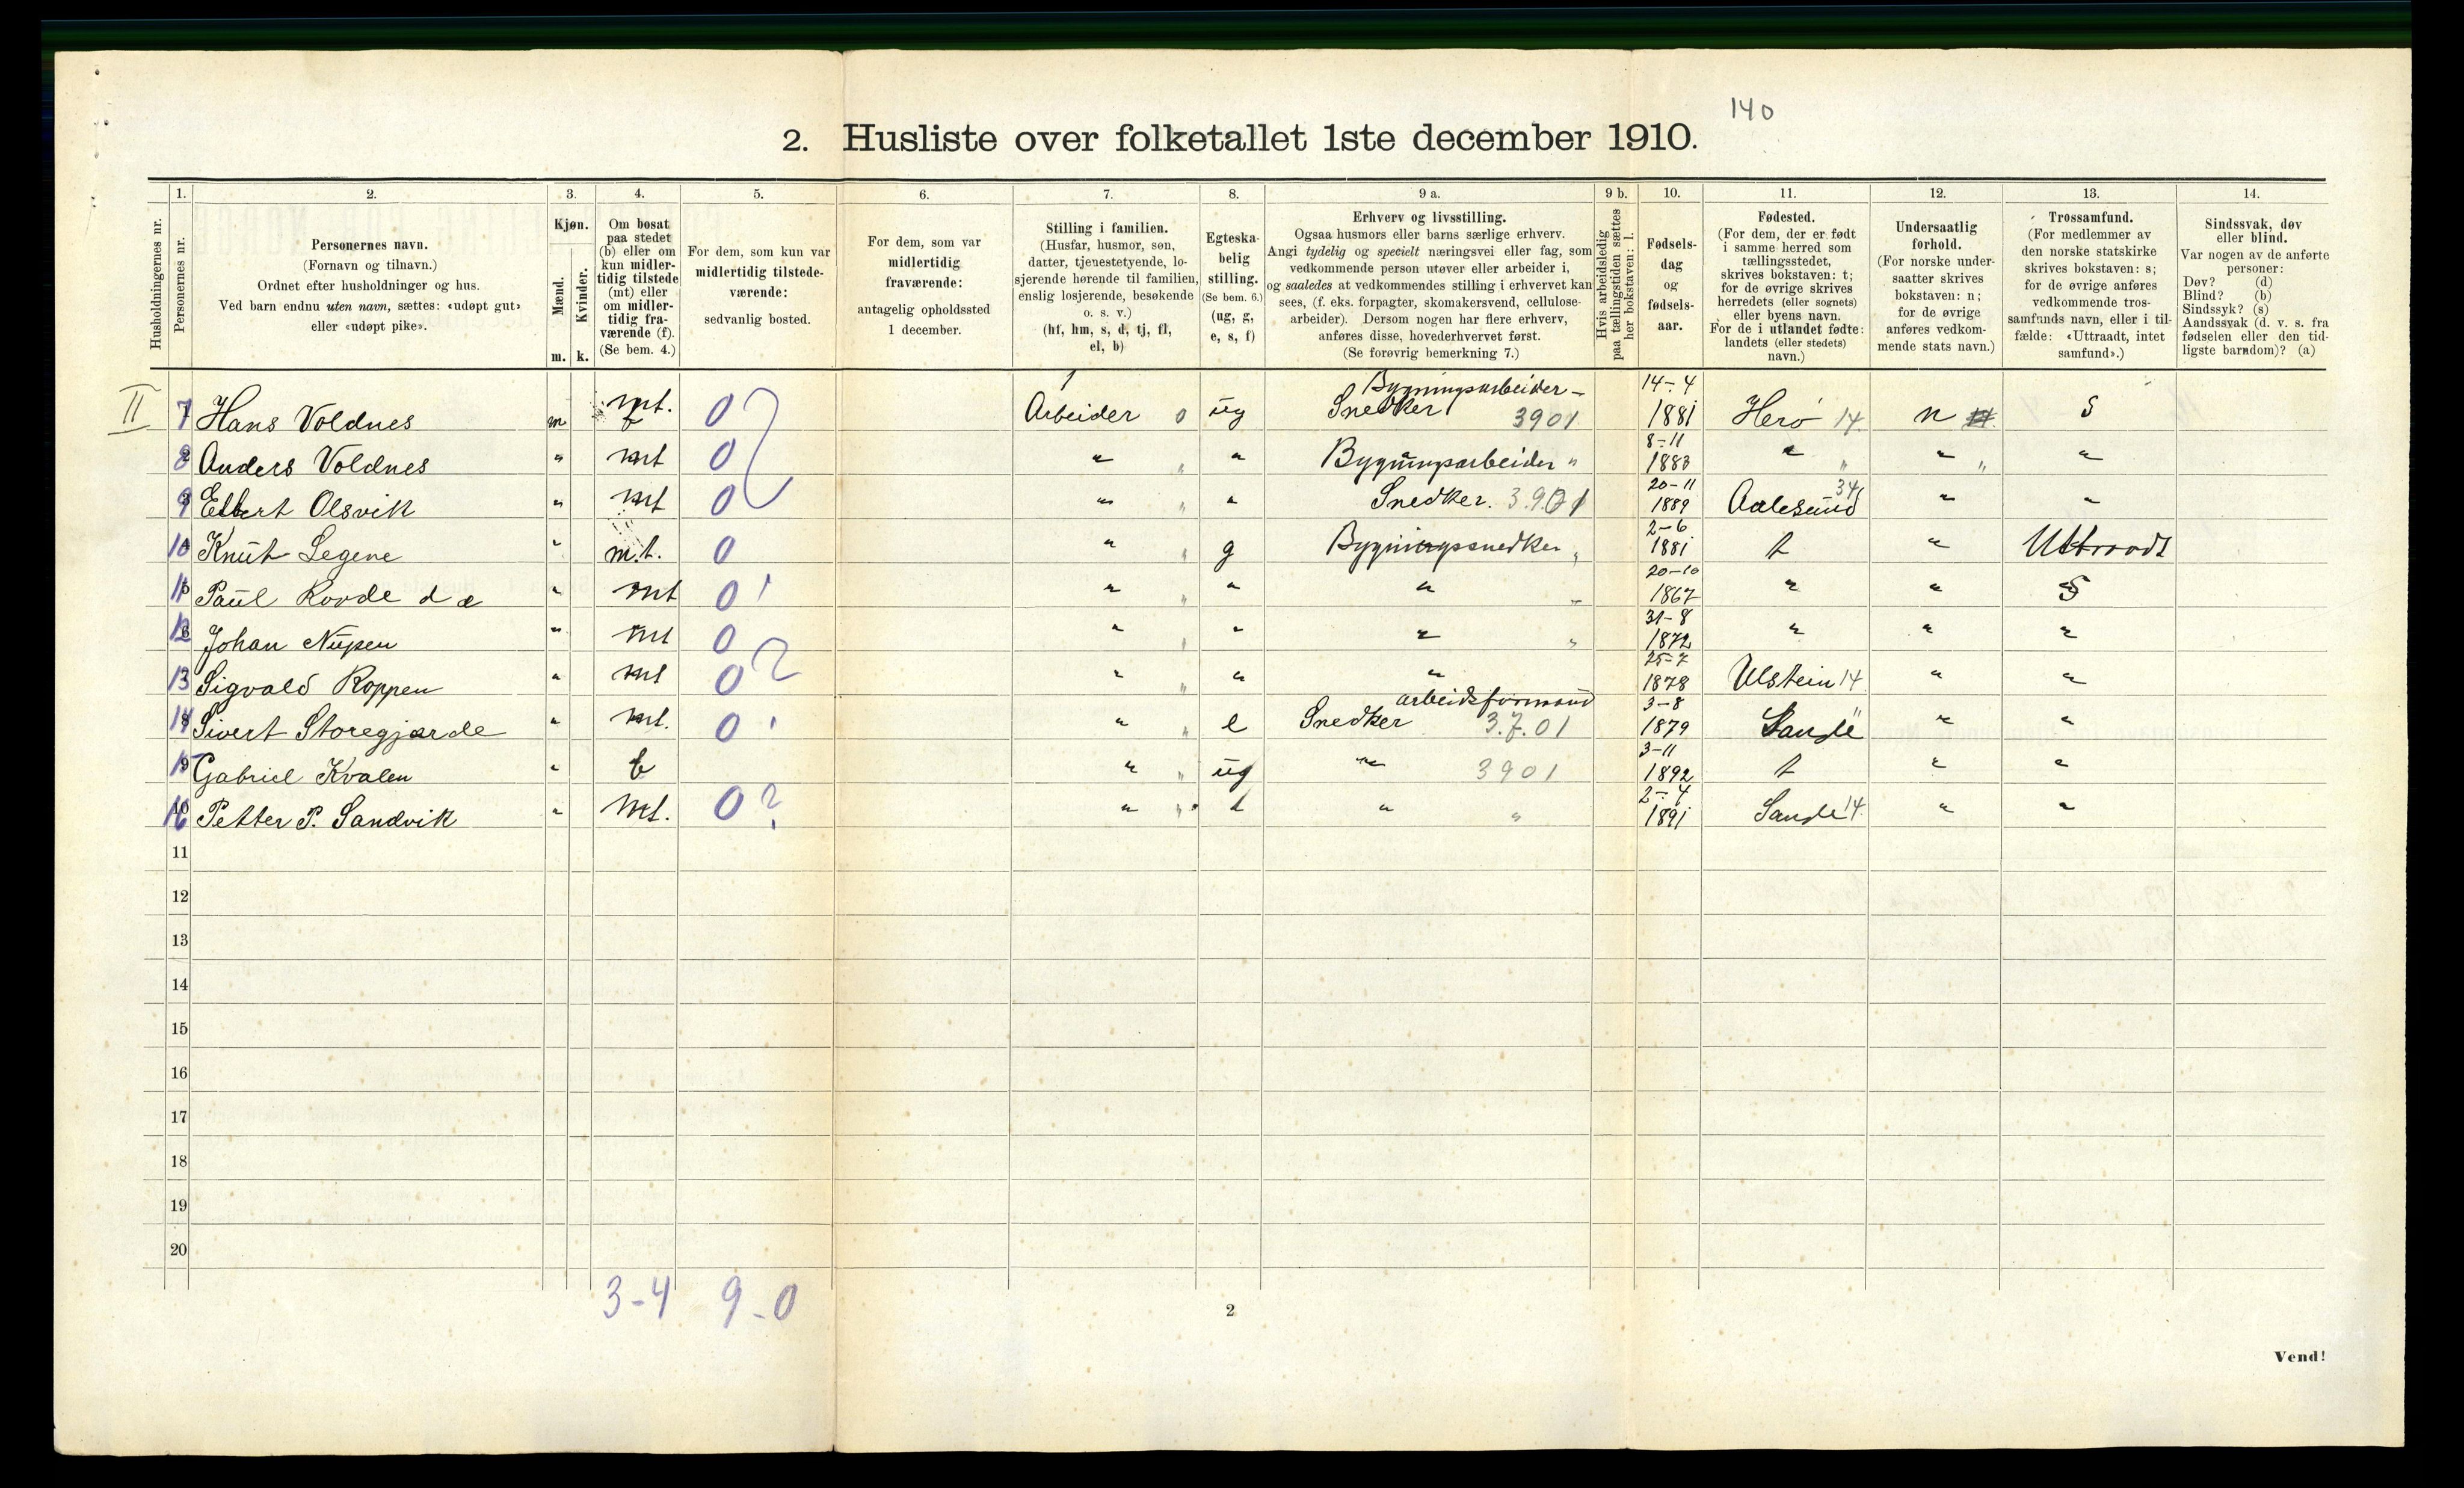 140
2. Husliste over folketallet 1ste december 1910.
Husholdningernes nr.
1. Personernes nr.
2. Personernes navn.
(Fornavn og tilnavn.)
Ordnet efter husholdninger og hus.
Ved barn endnu uten navn, sættes: «udøpt gut»
eller «udøpt pike».
3. Kjøn.
Mænd. Kvinder.
m. k.
4. Om bosat
paa stedet
(b) eller om
kun midler-
tidig tilstede
(mt) eller
om midler-
tidig fra-
værende (f).
(Se bem. 4.)
5. For dem, som kun var
midlertidig tilstede-
værende:
sedvanlig bosted.
6. For dem, som var
midlertidig
fraværende:
antagelig opholdssted
1 december.
7. Stilling i familien.
(Husfar, husmor, søn,
datter, tjenestetyende, lo-
sjerende hørende til familien,
enslig losjerende, besøkende
o. s. v.)
(hf, hm, s, d, tj, fl,
el, b)
8. Egteska-
belig
stilling.
(Se bem. 6.)
(ug, g,
e, s, f)
9 a. Erhverv og livsstilling.
Ogsaa husmors eller barns særlige erhverv.
Angi tydelig og specielt næringsvei eller fag, som
vedkommende person utøver eller arbeider i,
og saaledes at vedkommendes stilling i erhvervet kan
sees, (f. eks. forpagter, skomakersvend, cellulose-
arbeider). Dersom nogen har flere erhverv,
anføres disse, hovederhvervet først.
(Se forøvrig bemerkning 7.)
9 b. Hvis arbeidsledig
paa tællingstiden sættes
her bokstaven: l.
10. Fødsels-
dag
og
fødsels-
aar.
11. Fødested.
(For dem, der er født
i samme herred som
tællingsstedet,
skrives bokstaven: t;
for de øvrige skrives
herredets (eller sognets)
eller byens navn.
For de i utlandet fødte:
landets (eller stedets)
navn.)
12. Undersaatlig
forhold.
(For norske under-
saatter skrives
bokstaven: n;
for de øvrige
anføres vedkom-
mende stats navn.)
13. Trossamfund.
(For medlemmer av
den norske statskirke
skrives bokstaven: s;
for de øvrige anføres
vedkommende tros-
samfunds navn, eller i til-
fælde: «Uttraadt, intet
samfund».)
14. Sindssvak, døv
eller blind.
Var nogen av de anførte
personer:
Døv? (d)
Blind? (b)
Sindssyk? (s)
Aandssvak (d. v. s. fra
fødselen eller den tid-
ligste barndom)? (a)
II 7 Hans Voldnes m mt. 0 Arbeider 0 ug Bygningsarbeider - Snedker 3901 14-4 1881 Herö 14 n s
8 Anders Voldnes " mt 0 " " " Bygningsarbeider " 8-11 1883 " " "
9 Olsvik " mt 0 " " " Snedker. 3.901 20-11 1889 Aalesund 34 " "
10 Knut Legene " m.t. 0 " " g Bygningssnedker " 2-6 1881 t " Uttraadt
11 Paul " mt 0 " " " " " 20-10 1867 " " S
12 Johan Nupen " mt 0 " " " " " 31-8 1872 " " "
13 Sigvald Roppen " mt 0 " " " " 25-7 1878 Ulstein 14 " "
14 Sivert Storegjærde " mt. 0 " " e Snedker arbeidsformand 3.7.01 3-8 1879 Sande " " "
15 Gabriel Kvalen " b " " ug " 3901 3-11 1892 t " "
16 Petter P. Sandvik " mt. 0 ? " " " " 2-4 1891 Sande 14 " "
11
12
13
14
15
16
17
18
19
20
3-4 9-0
2
Vend!